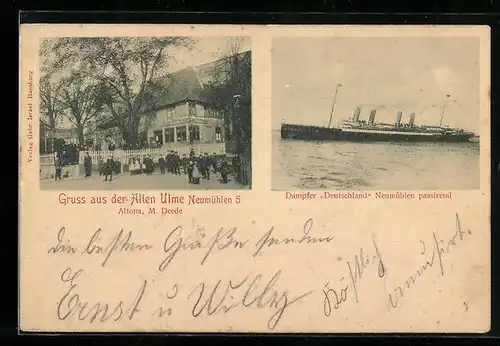 Verlag Gebr. Israel Hamburg
Gruss aus der Alten Ulme Neumühlen 8
Altona, M. Deede
Dampfer „Deutschland“ Neumühlen passirend
die besten Grüße senden
Ernst u Willy
Höchst
amüsirt.